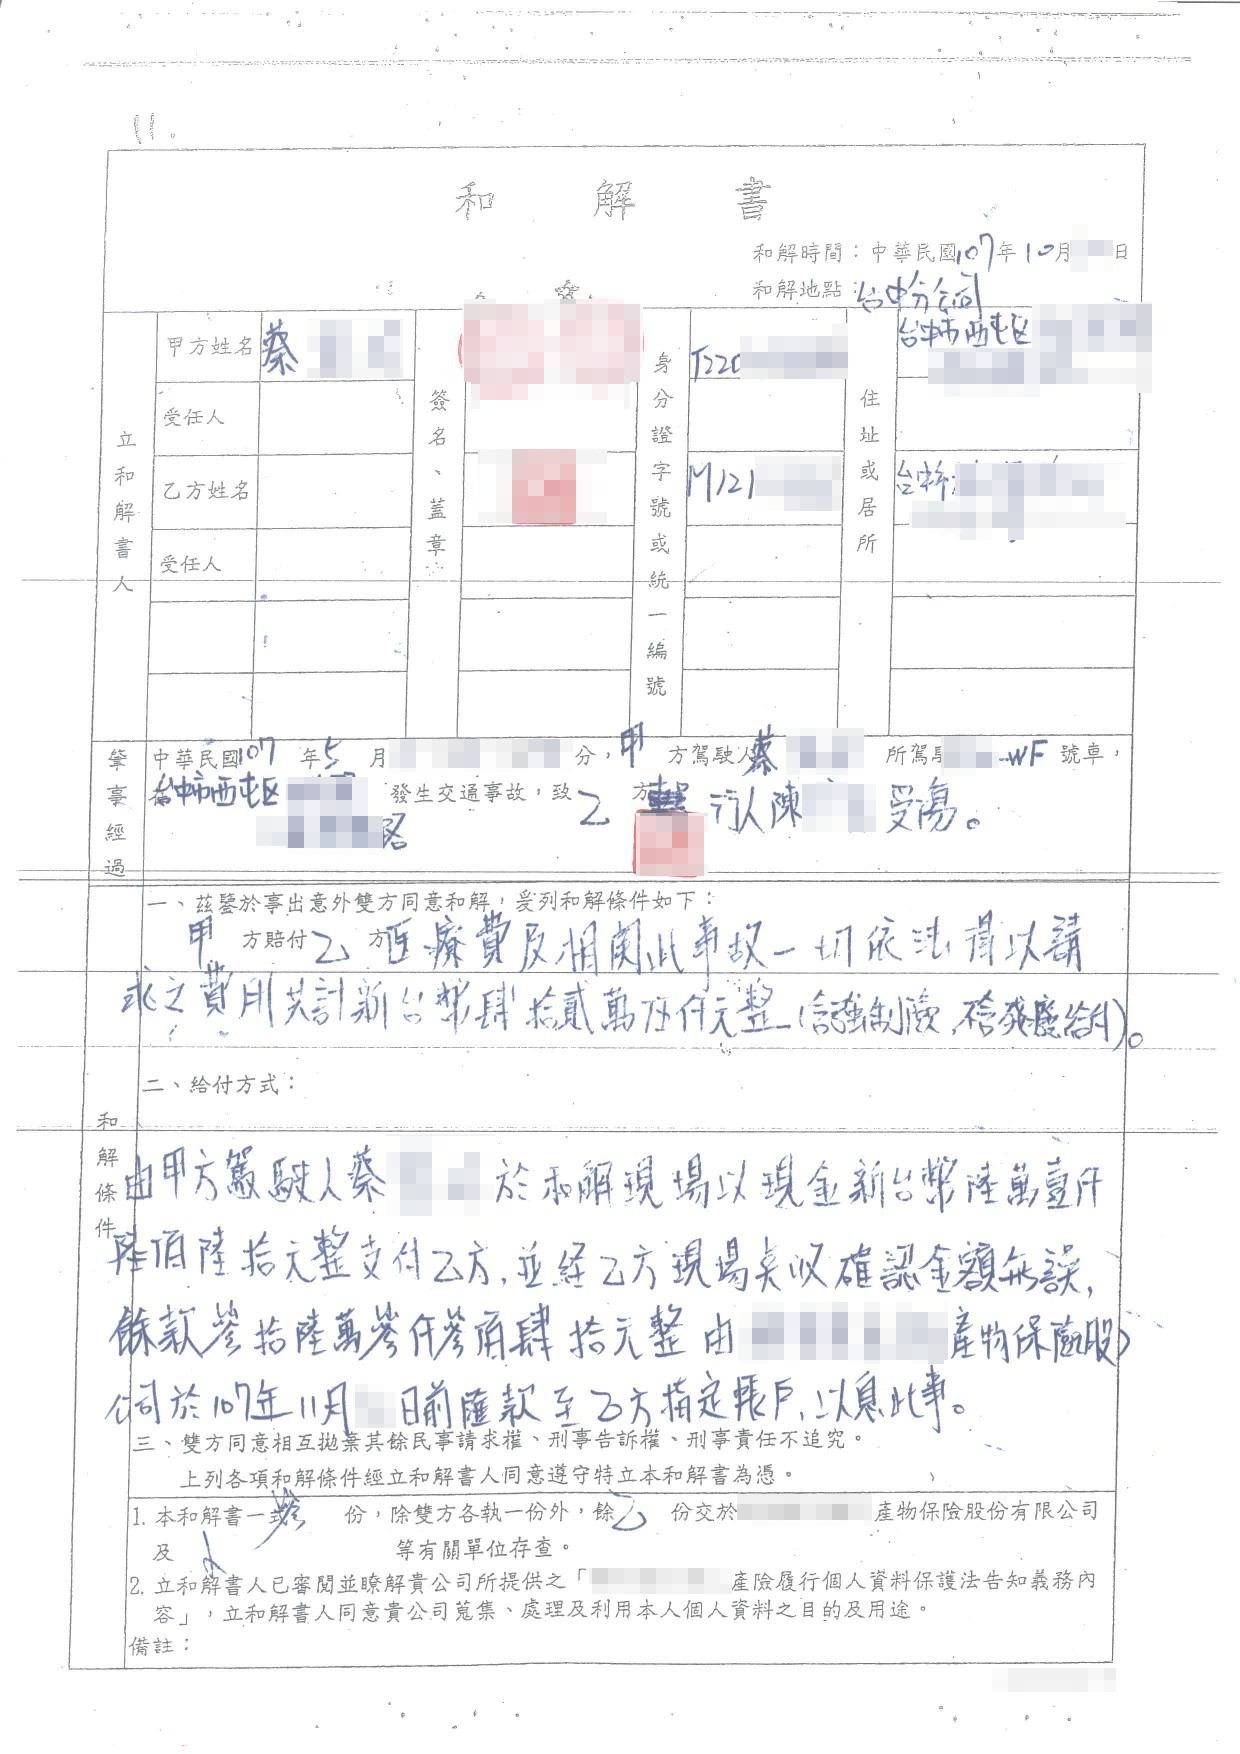 11.
和解書
和解時間：中華民國107年10月 日
和解地點：台中分公司
立和解書人
甲方姓名 蔡
簽名、蓋章
身分證字號或統一編號
T220
住址或居所
台中市西屯区
受任人
乙方姓名
M121
台中市
受任人
肇事經過
中華民國107年5月 分，甲方駕駛人蔡 所駕駛 -WF號車，
台中市西屯区 發生交通事故，致乙方 行人陳 受傷。
路
和解條件
一、茲鑒於事出意外雙方同意和解，受列和解條件如下：
甲方賠付乙方医療費及相関此事故一切依法得以請
求之費用共計新台幣肆拾貳萬伍仟元整(含強制險,不含殘廢給付)。
二、給付方式：
由甲方駕駛人蔡 於和解現場以現金新台幣陸萬壹仟
陸佰陸拾元整支付乙方,並經乙方現場点收確認金額無誤,
餘款參拾陸萬參仟參佰肆拾元整由 產物保險股)
公司於107年11月 日前匯款至乙方指定帳戶,以息此事。
三、雙方同意相互拋棄其餘民事請求權、刑事告訴權、刑事責任不追究。
上列各項和解條件經立和解書人同意遵守特立本和解書為憑。
1. 本和解書一式參份，除雙方各執一份外，餘乙份交於 產物保險股份有限公司
及 等有關單位存查。
2. 立和解書人已審閱並瞭解貴公司所提供之「 產險履行個人資料保護法告知義務內
容」，立和解書人同意貴公司蒐集、處理及利用本人個人資料之目的及用途。
備註：